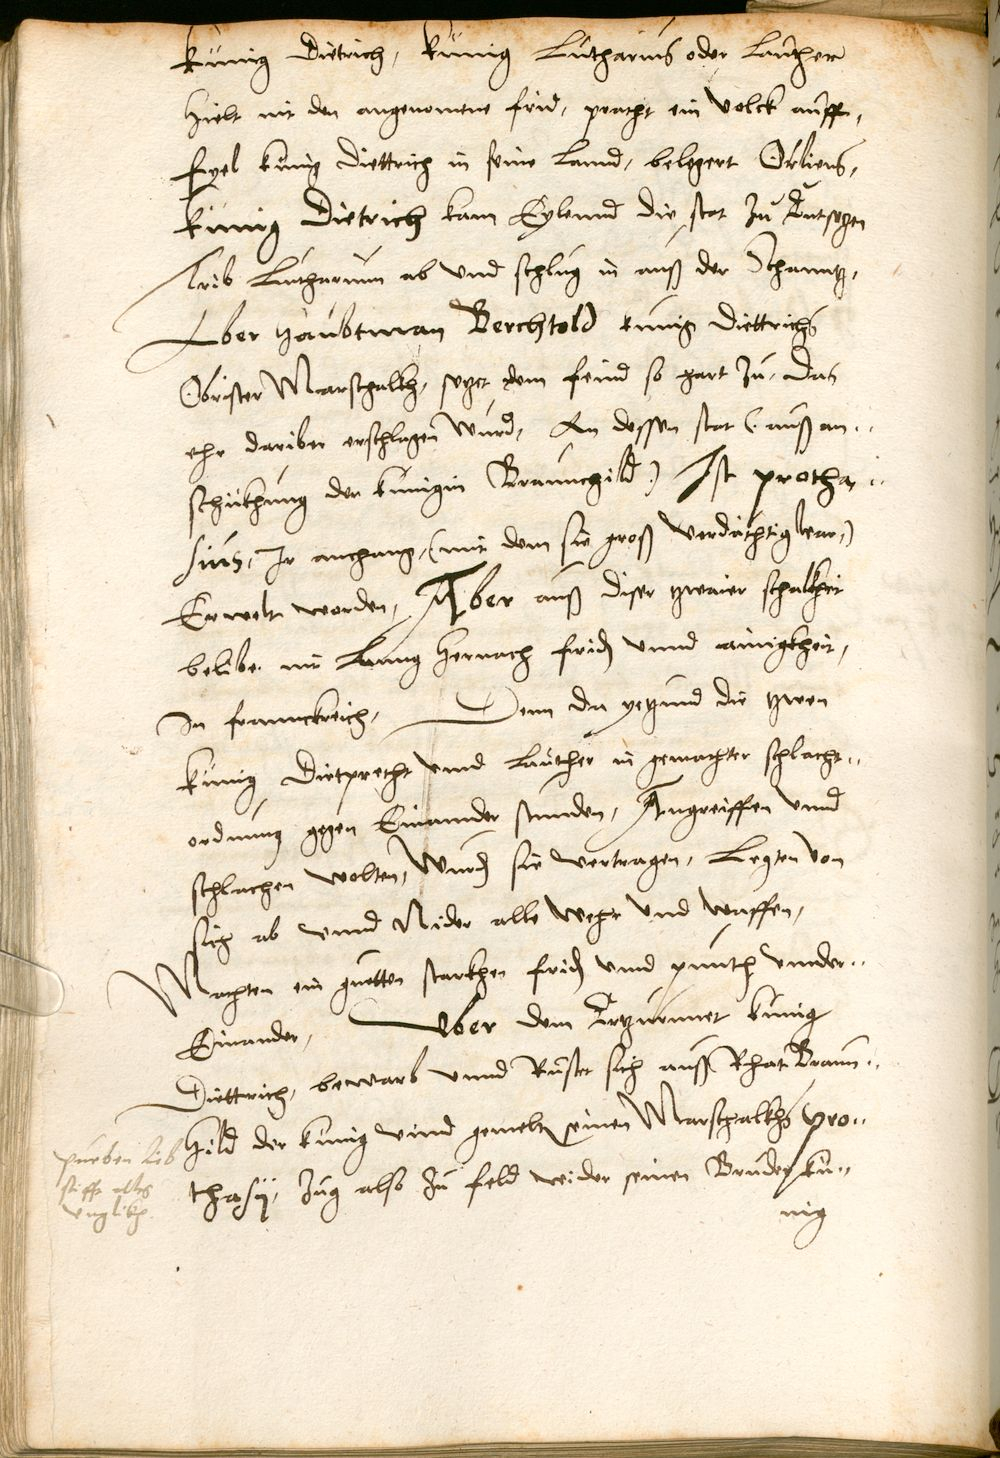 künig Dietrich, künig Lutharius oder Lauther
hielt nit den angenomene frid, pracht ein volck auff,
fyel künig Diettrich in seine lannd, belegert Orliens,
künig Dietrich kam Eylennd die stat zu Entsezen
trib Lutharium ab und schlug in auß der Schanntz,
Aber haubtman Berchtold künig Diettrichs
Obrister Marschalkh, sezet dem feind so hart zu, das
ehr dariber erschlagen wurd, An dessen stat (auß an..
schükhung der künigin Braunchild) Ist protha..
sius, Ir anhang, (mit dem sie groß verdächtig war,)
Erwelt worden, Aber auß diser zwaier schalkheit
belibe nit lanng hernach frid unnd ainigkheit,
In Franckreich, Denn da yezund die zwen
künig Dietprecht unnd Lauther in gemachter schlacht..
ordnung gegen Einannder stunden, Angreiffen unnd
schlachen wolten, Wurd sie vertragen, Legten von
sich ab unnd Nider alle wehr und waffen,
Machten ein guetten starkhen frid unnd pünth unnder..
Einander, Uber dem Erzürnnet künig
Diettrich, bewarb unnd Rüstet sich auß Rhat Braun..
hild der künig unnd gemelts seinen Marschalkhs pro..
thasÿ, Zug also zu feld wider seinen Bruder kü..
nig
pueben lieb
stifft alles
unglikh